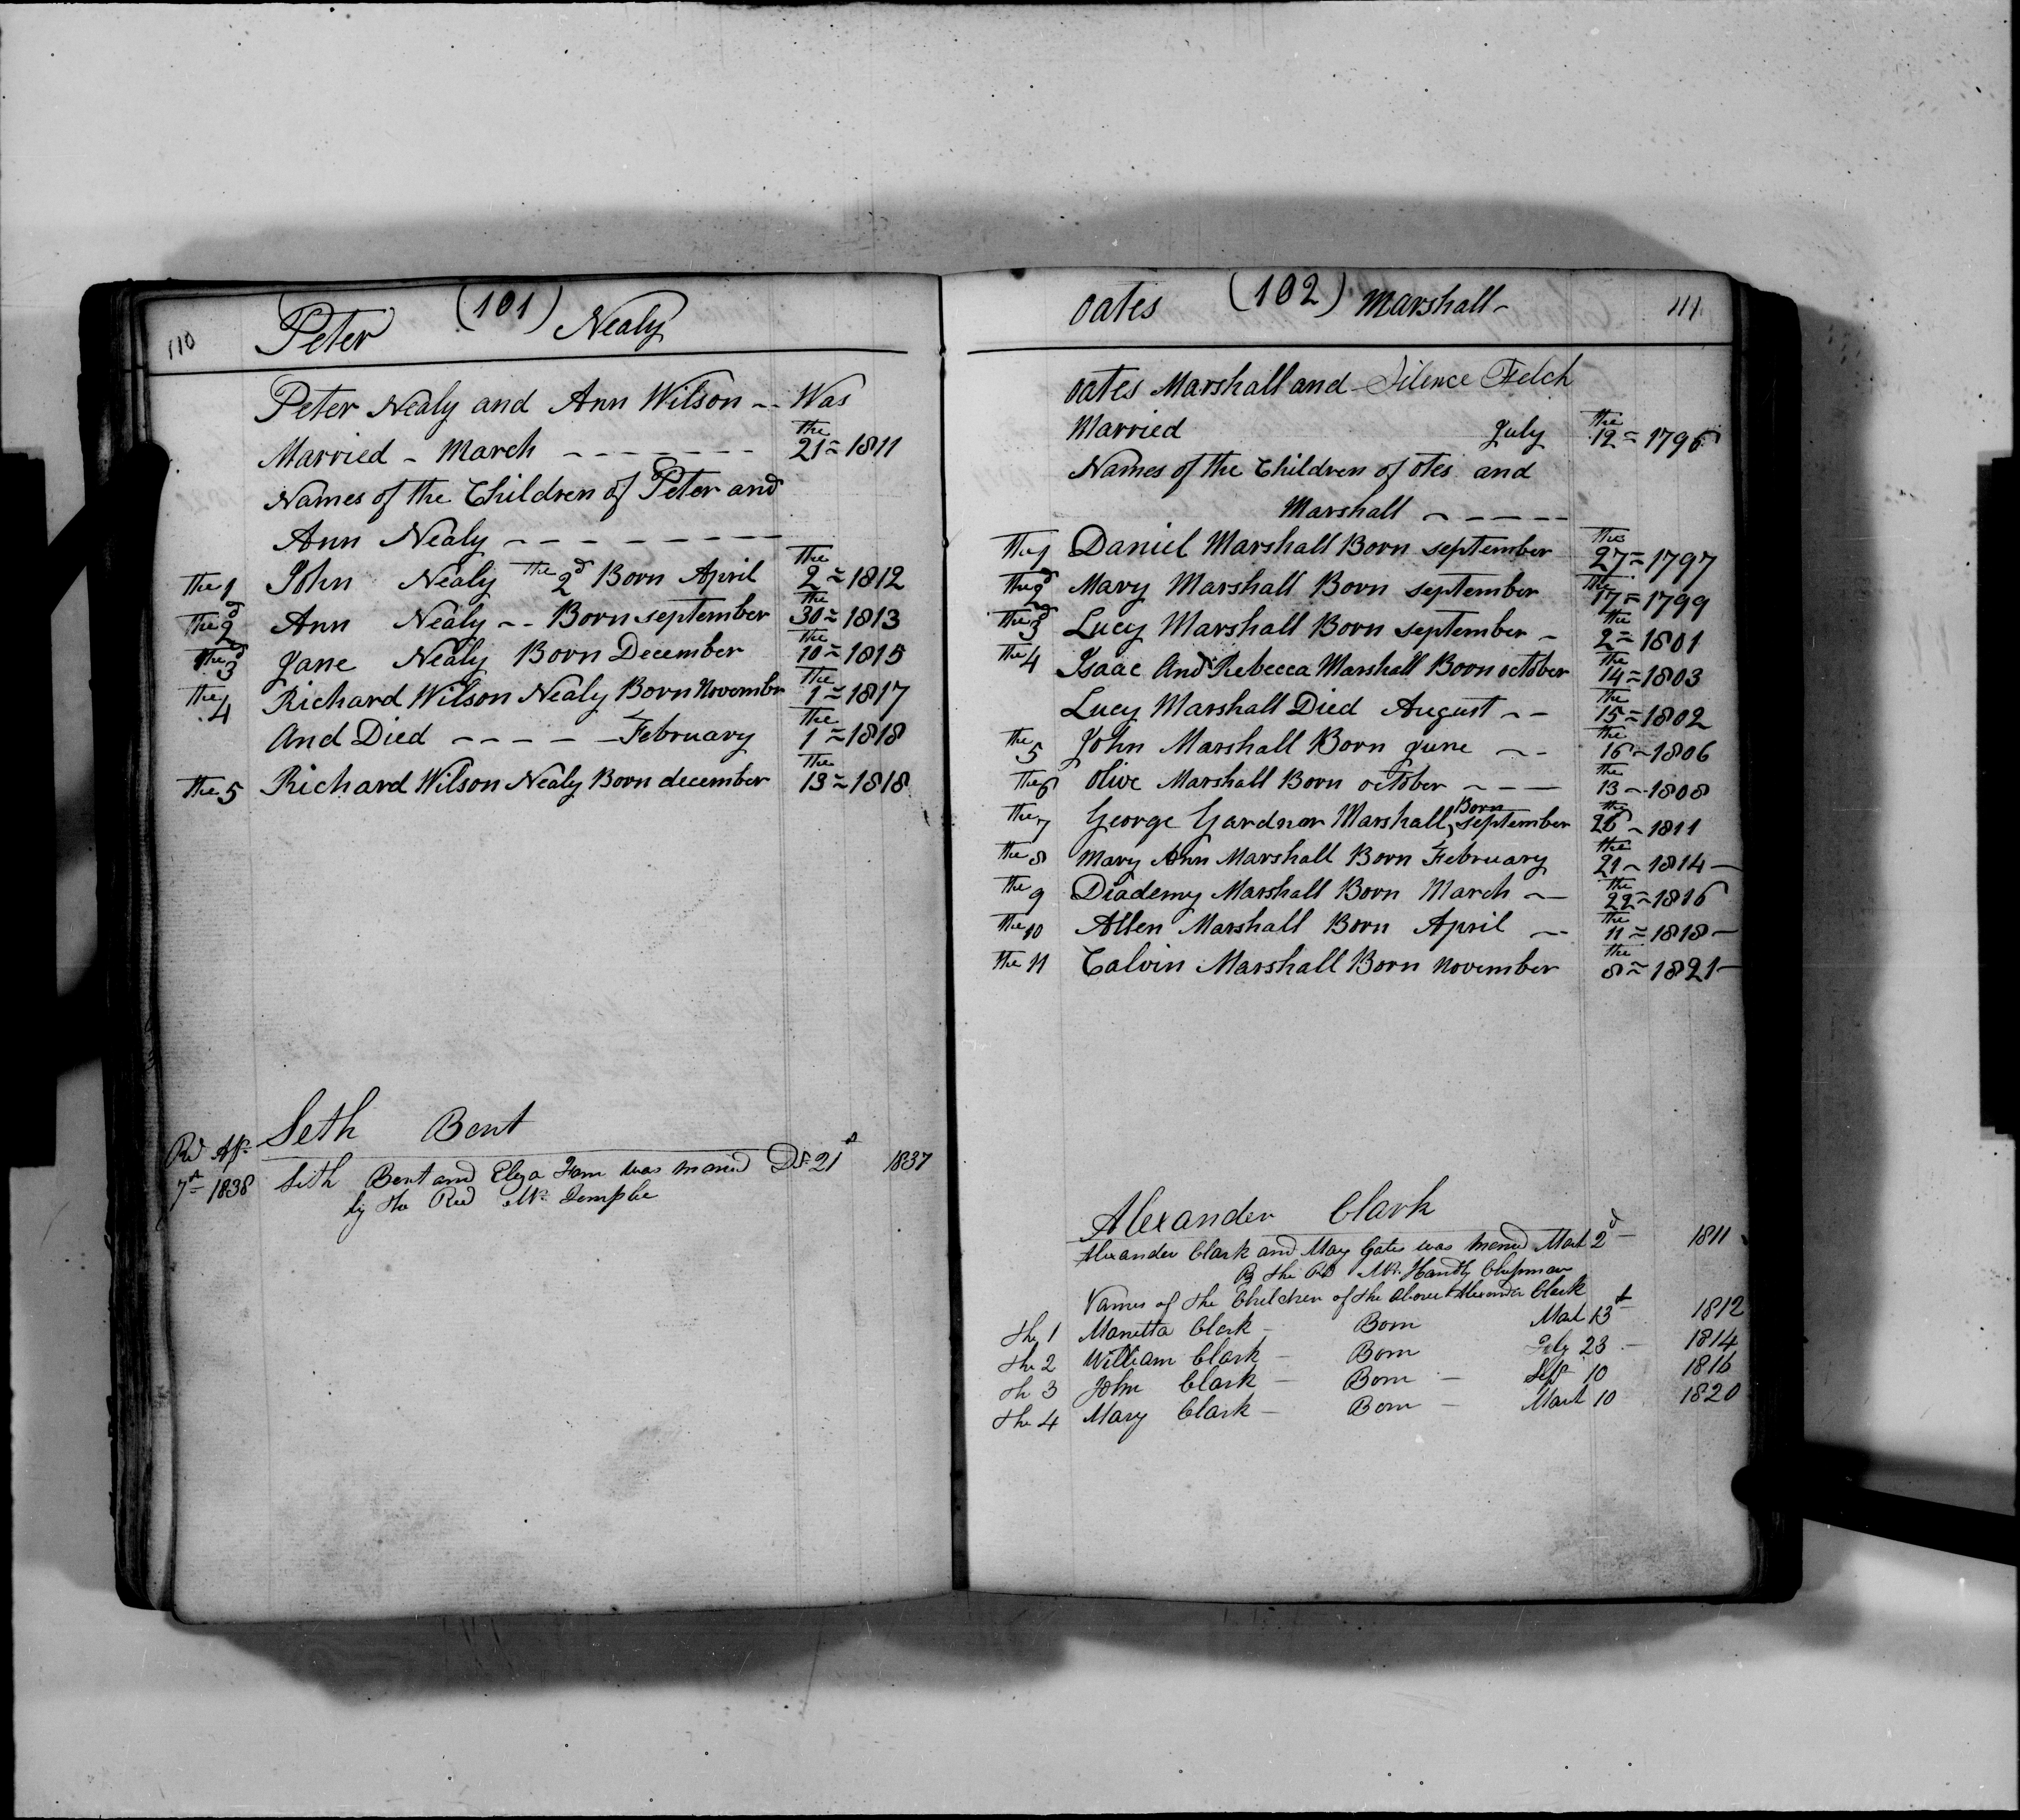 110 Peter (101) Nealy
Peter Nealy and Ann Wilson -- Was
Married - March - - - - - - - the 21 = 1811
Names of the Children of Peter and
Ann Nealy - - - - - - - -
the 1 John Nealy the 2d Born April the 2 = 1812
the 2d Ann Nealy -- Born september the 30 = 1813
the 3d Jane Nealy Born December the 10 = 1815
the 4 Richard Wilson Nealy Born November the 1 = 1817
And Died - - - - - February the 1 = 1818
the 5 Richard Wilson Nealy Born december the 13 = 1818
Seth Bent
Rd
7th 1838 Seth Bent and Eliza was 21st 1837
by the Revd Mr Temple
oates (102) Marshall - 111
oates Marshall and Silence Felch
Married July the 12 = 1796
Names of the Children of otes and
Marshall - - - - -
the 1 Daniel Marshall Born september the 27 = 1797
the 2d Mary Marshall Born september the 17 = 1799
the 3d Lucy Marshall Born september - the 2 = 1801
the 4 Isaac And Rebecca Marshall Born october the 14 = 1803
Lucy Marshall Died August -- the 15 = 1802
the 5 John Marshall Born June -- the 16 - 1806
the 6 olive Marshall Born october - - - the 13 - 1808
the 7 George Gardner Marshall, Born september the 26 - 1811
the 8 Mary Ann Marshall Born February the 21 - 1814 -
the 9 Diademy Marshall Born March -- the 22 = 1816
the 10 Allen Marshall Born April -- the 11 = 1818 -
the 11 Calvin Marshall Born November the 8 = 1821 -
Alexander Clark
Alexander Clark and May Gates was 2d - 1811
By the Rd Mr. Handly Chipman
Names of the Children of the Above Alexander Clark
the 1 Marietta Clark - Born 13th 1812
the 2 William Clark - Born July 23 - 1814
th 3 John Clark - Born - Sept 10 1816
the 4 Mary Clark - Born - 10 1820